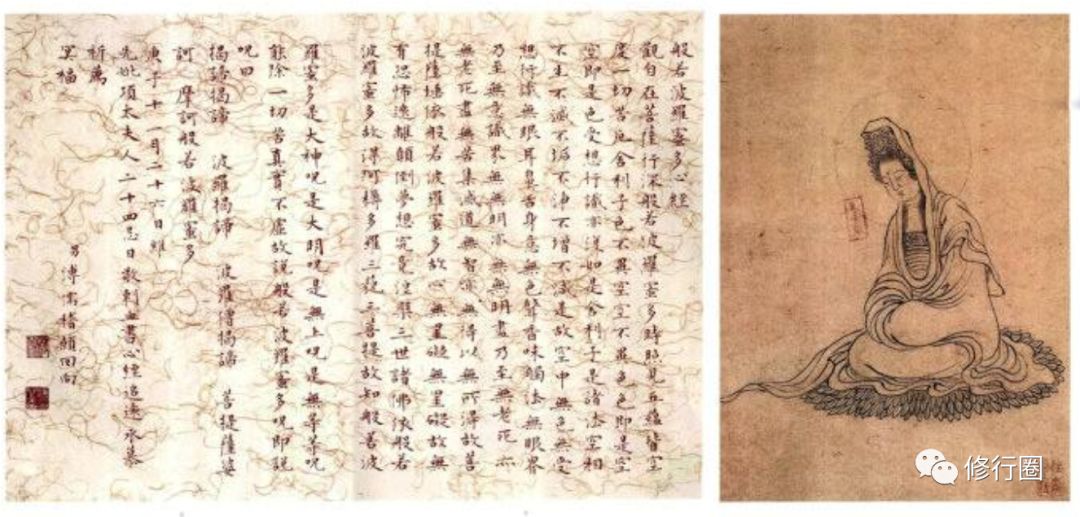 般若波羅蜜多心經
觀自在菩薩行深般若波羅蜜多時照見五蘊皆空
度一切苦厄舍利子色不異空空不異色色即是空
空即是色受想行識亦復如是舍利子是諸法空相
不生不滅不垢不淨不增不減是故空中無色無受
想行識無眼耳鼻舌身意無色聲香味觸法無眼界
乃至無意識界無無明亦無無明盡乃至無老死亦
無老死盡無苦集滅道無智亦無得以無所得故菩
提薩埵依般若波羅蜜多故心無罣礙無罣礙故無
有恐怖遠離顛倒夢想究竟涅槃三世諸佛依般若
波羅蜜多故得阿耨多羅三藐三菩提故知般若波
羅蜜多是大神呪是大明呪是無上呪是無等等呪
能除一切苦真實不虛故說般若波羅蜜多呪即說
呪曰
揭諦揭諦 波羅揭諦 波羅僧揭諦 菩提薩婆
訶 摩訶般若波羅蜜多
庚子十一月二十六日即
先妣項太夫人二十四忌日敬刺血書心經追遠永慕
祈薦
冥福
男溥儒稽顙回向
修行圈